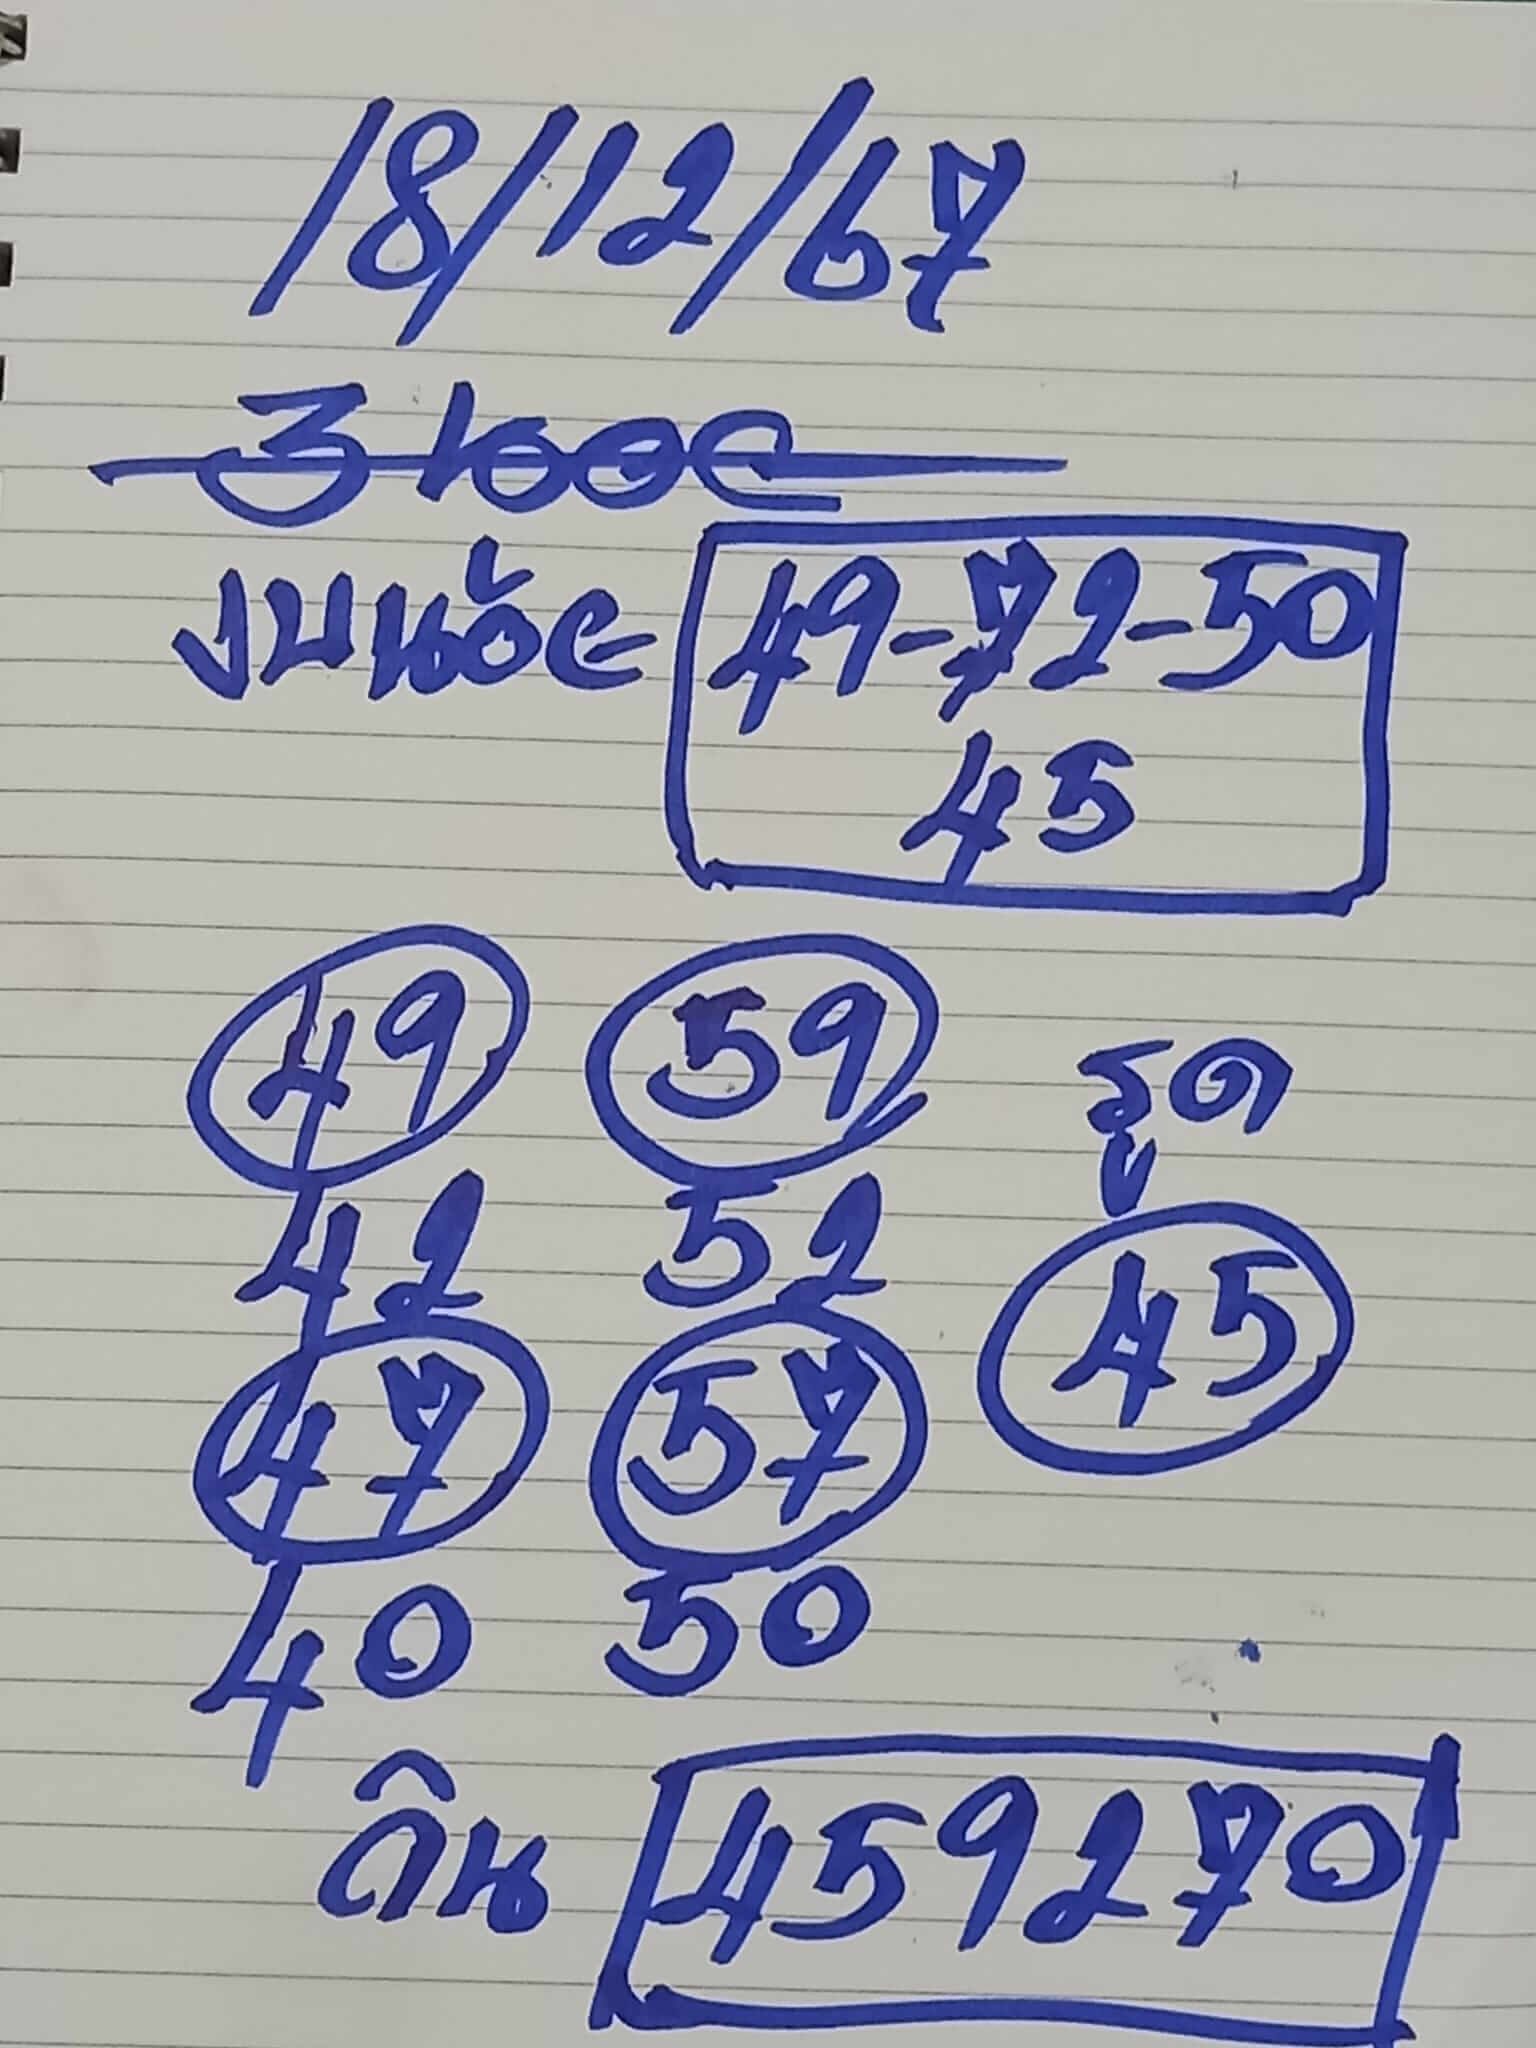 18/12/67
งบน้อย 49-72-50
45
49 59
รูด
42 52
45
47 57
40 50
วิน 459270